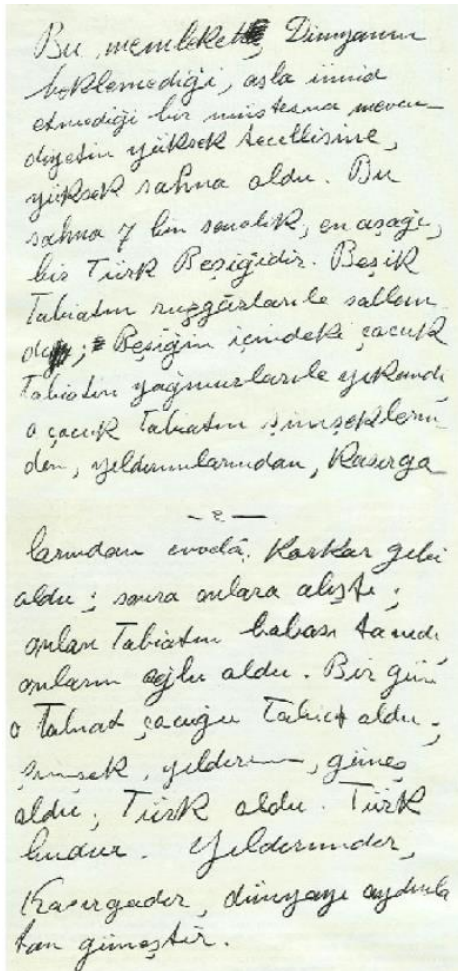 Bu memleket, Dünyanın
beklemediği, asla ümid
etmediği bir müstesna mevcu-
diyetin yüksek tecellisine,
yüksek sahna oldu. Bu
sahna 7 bin senelik, en aşağı,
bir Türk Beşiğidir. Beşik
Tabiatın rüzgârlarıle sallan
dı; Beşiğin içindeki çocuk
Tabiatın yağmurlarıle yıkandı,
o çocuk Tabiatın şimşeklerin
den, yıldırımlarından, Kasırga
- 2 -
larından evvelâ, Korkar gibi
oldu; sonra onlara alıştı;
onları Tabiatın babası tanıdı,
onların oğlu oldu. Bir gün
o Tabiat çocuğu Tabiat oldu;
şimşek, yıldırım, güneş
oldu; Türk oldu. Türk
budur. Yıldırımdır,
Kasırgadır, dünyayı aydınla
tan güneştir.